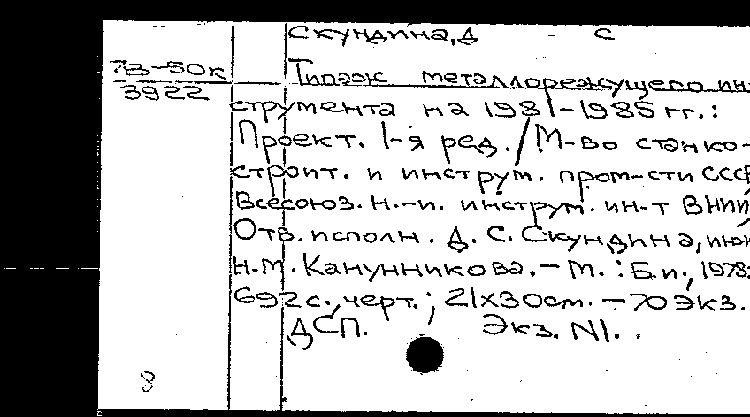 Скундина, Д С
7В-50к
3922
Типаж металлорежущего ин
струмента на 1981-1985 гг.:
Проект. 1-я ред. / М-во станко-
строит. и инструм. пром-сти СССР
Всесоюз. н.-и. инструм. ин-т ВНИИ
Отв. исполн. Д. С. Скундина,
Н.М. Канунникова. - М.: Б.и., 1978.
692 с., черт.; 21х30см. - 70 экз.
ДСП. Экз. N1.
8